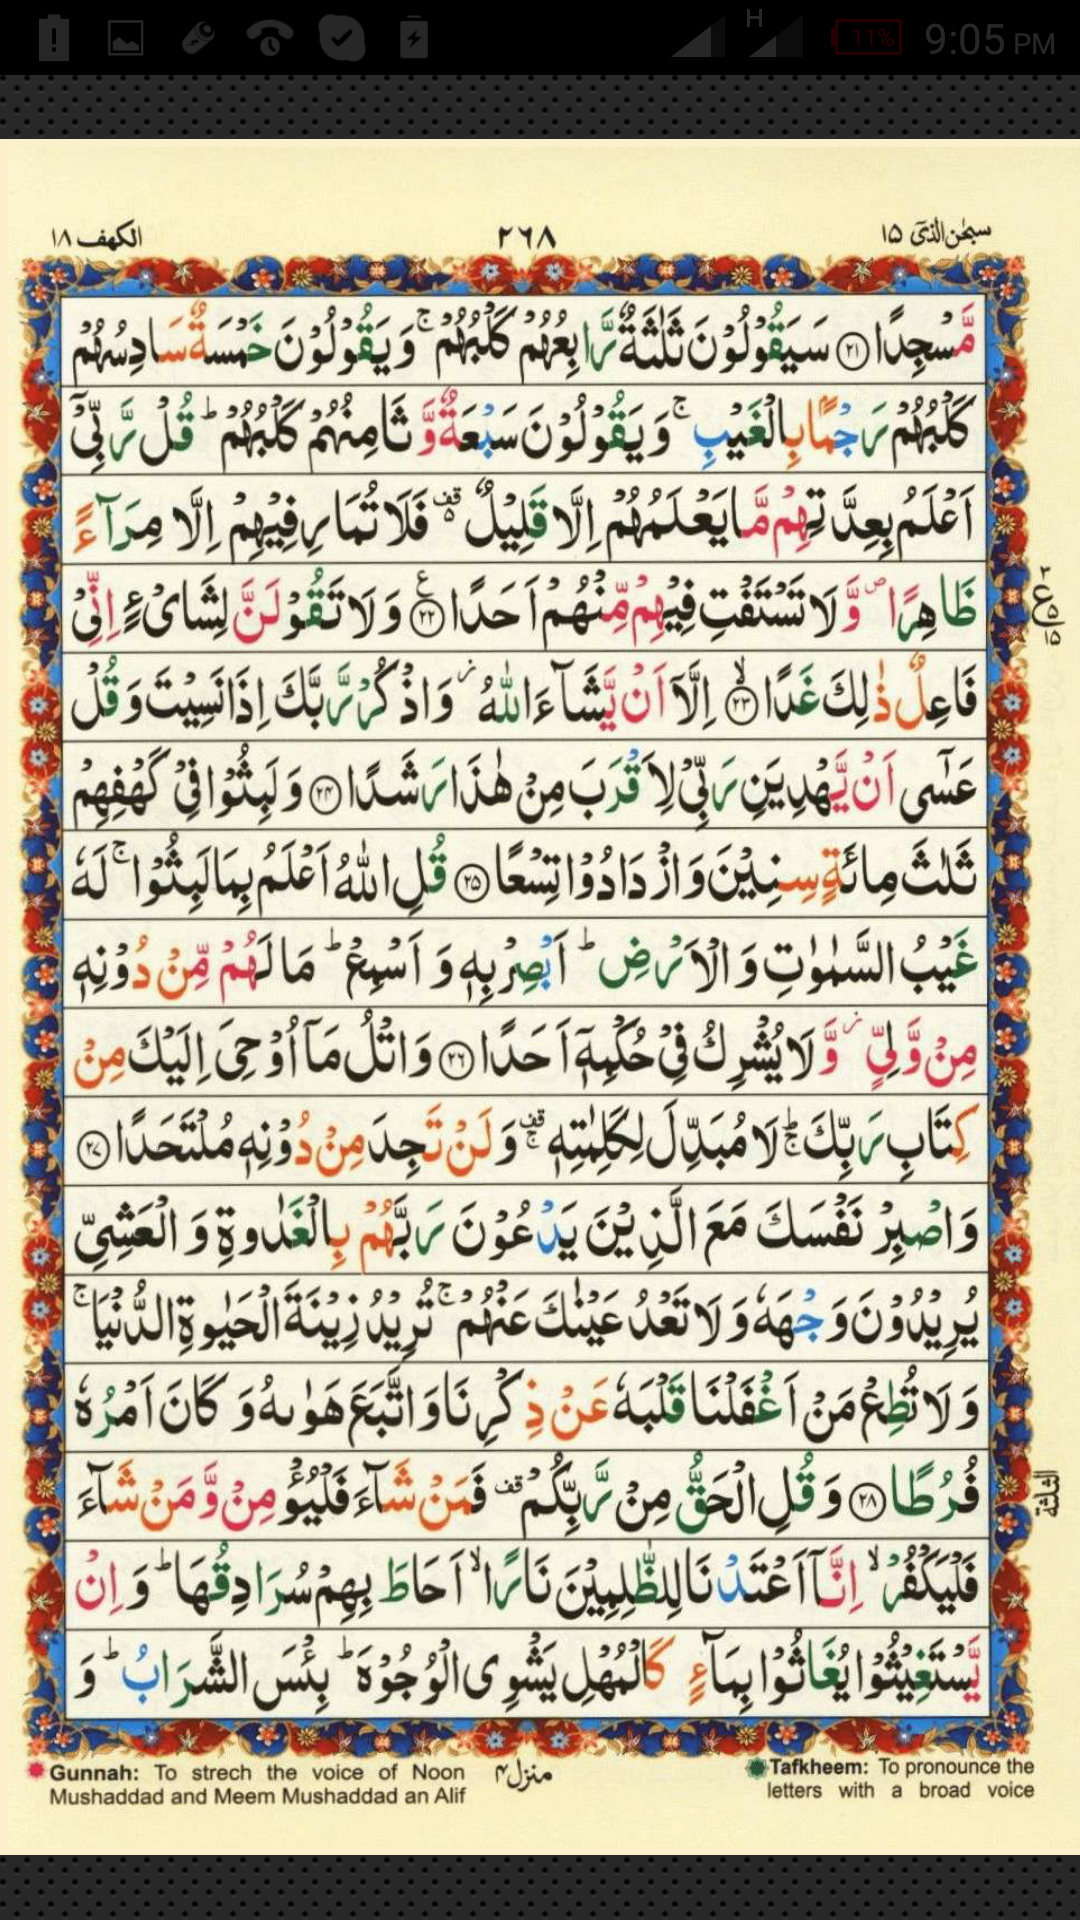 H 11% 9:05 PM
سبحٰن الذیٓ ۱۵
۲۶۸
الکھف ۱۸
مَّسْجِدًا ﴿۲۱﴾ سَيَقُوْلُوْنَ ثَلٰثَةٌ رَّابِعُهُمْ كَلْبُهُمْ ۚ وَيَقُوْلُوْنَ خَمْسَةٌ سَادِسُهُمْ
كَلْبُهُمْ رَجْمًۢا بِالْغَيْبِ ۚ وَيَقُوْلُوْنَ سَبْعَةٌ وَّثَامِنُهُمْ كَلْبُهُمْ ؕ قُلْ رَّبِّىْۤ
اَعْلَمُ بِعِدَّتِهِمْ مَّا يَعْلَمُهُمْ اِلَّا قَلِيْلٌ ۫ فَلَا تُمَارِ فِيْهِمْ اِلَّا مِرَآءً
ظَاهِرًا ۪ وَّلَا تَسْتَفْتِ فِيْهِمْ مِّنْهُمْ اَحَدًا ﴿۲۲﴾ وَلَا تَقُوْلَنَّ لِشَاىْءٍ اِنِّىْ
۳
ع
۵
۱۵
فَاعِلٌ ذٰلِكَ غَدًا ﴿۲۳﴾ اِلَّاۤ اَنْ يَّشَآءَ اللّٰهُ ؗ وَاذْكُرْ رَّبَّكَ اِذَا نَسِيْتَ وَقُلْ
عَسٰٓى اَنْ يَّهْدِيَنِ رَبِّىْ لِاَقْرَبَ مِنْ هٰذَا رَشَدًا ﴿۲۴﴾ وَلَبِثُوْا فِىْ كَهْفِهِمْ
ثَلٰثَ مِائَةٍ سِنِيْنَ وَازْدَادُوْا تِسْعًا ﴿۲۵﴾ قُلِ اللّٰهُ اَعْلَمُ بِمَا لَبِثُوْا ۚ لَهٗ
غَيْبُ السَّمٰوٰتِ وَالْاَرْضِ ؕ اَبْصِرْ بِهٖ وَاَسْمِعْ ؕ مَا لَهُمْ مِّنْ دُوْنِهٖ
مِنْ وَّلِىٍّ ؗ وَّلَا يُشْرِكُ فِىْ حُكْمِهٖۤ اَحَدًا ﴿۲۶﴾ وَاتْلُ مَاۤ اُوْحِىَ اِلَيْكَ مِنْ
كِتَابِ رَبِّكَ ؕۚ لَا مُبَدِّلَ لِكَلِمٰتِهٖ ۫ۚ وَلَنْ تَجِدَ مِنْ دُوْنِهٖ مُلْتَحَدًا ﴿۲۷﴾
وَاصْبِرْ نَفْسَكَ مَعَ الَّذِيْنَ يَدْعُوْنَ رَبَّهُمْ بِالْغَدٰوةِ وَالْعَشِىِّ
يُرِيْدُوْنَ وَجْهَهٗ وَلَا تَعْدُ عَيْنٰكَ عَنْهُمْ ۚ تُرِيْدُ زِيْنَةَ الْحَيٰوةِ الدُّنْيَا ۚ
وَلَا تُطِعْ مَنْ اَغْفَلْنَا قَلْبَهٗ عَنْ ذِكْرِنَا وَاتَّبَعَ هَوٰىهُ وَكَانَ اَمْرُهٗ
فُرُطًا ﴿۲۸﴾ وَقُلِ الْحَقُّ مِنْ رَّبِّكُمْ ۫ فَمَنْ شَآءَ فَلْيُؤْمِنْ وَّمَنْ شَآءَ
الثلٰثة
فَلْيَكْفُرْ ۙ اِنَّاۤ اَعْتَدْنَا لِلظّٰلِمِيْنَ نَارًا ۙ اَحَاطَ بِهِمْ سُرَادِقُهَا ؕ وَاِنْ
يَّسْتَغِيْثُوْا يُغَاثُوْا بِمَآءٍ كَالْمُهْلِ يَشْوِى الْوُجُوْهَ ؕ بِئْسَ الشَّرَابُ ؕ وَ
Gunnah: To strech the voice of Noon
Mushaddad and Meem Mushaddad an Alif
منزل ۴
Tafkheem: To pronounce the
letters with a broad voice